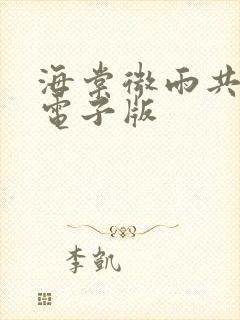 海棠微雨共
電子版
李凱